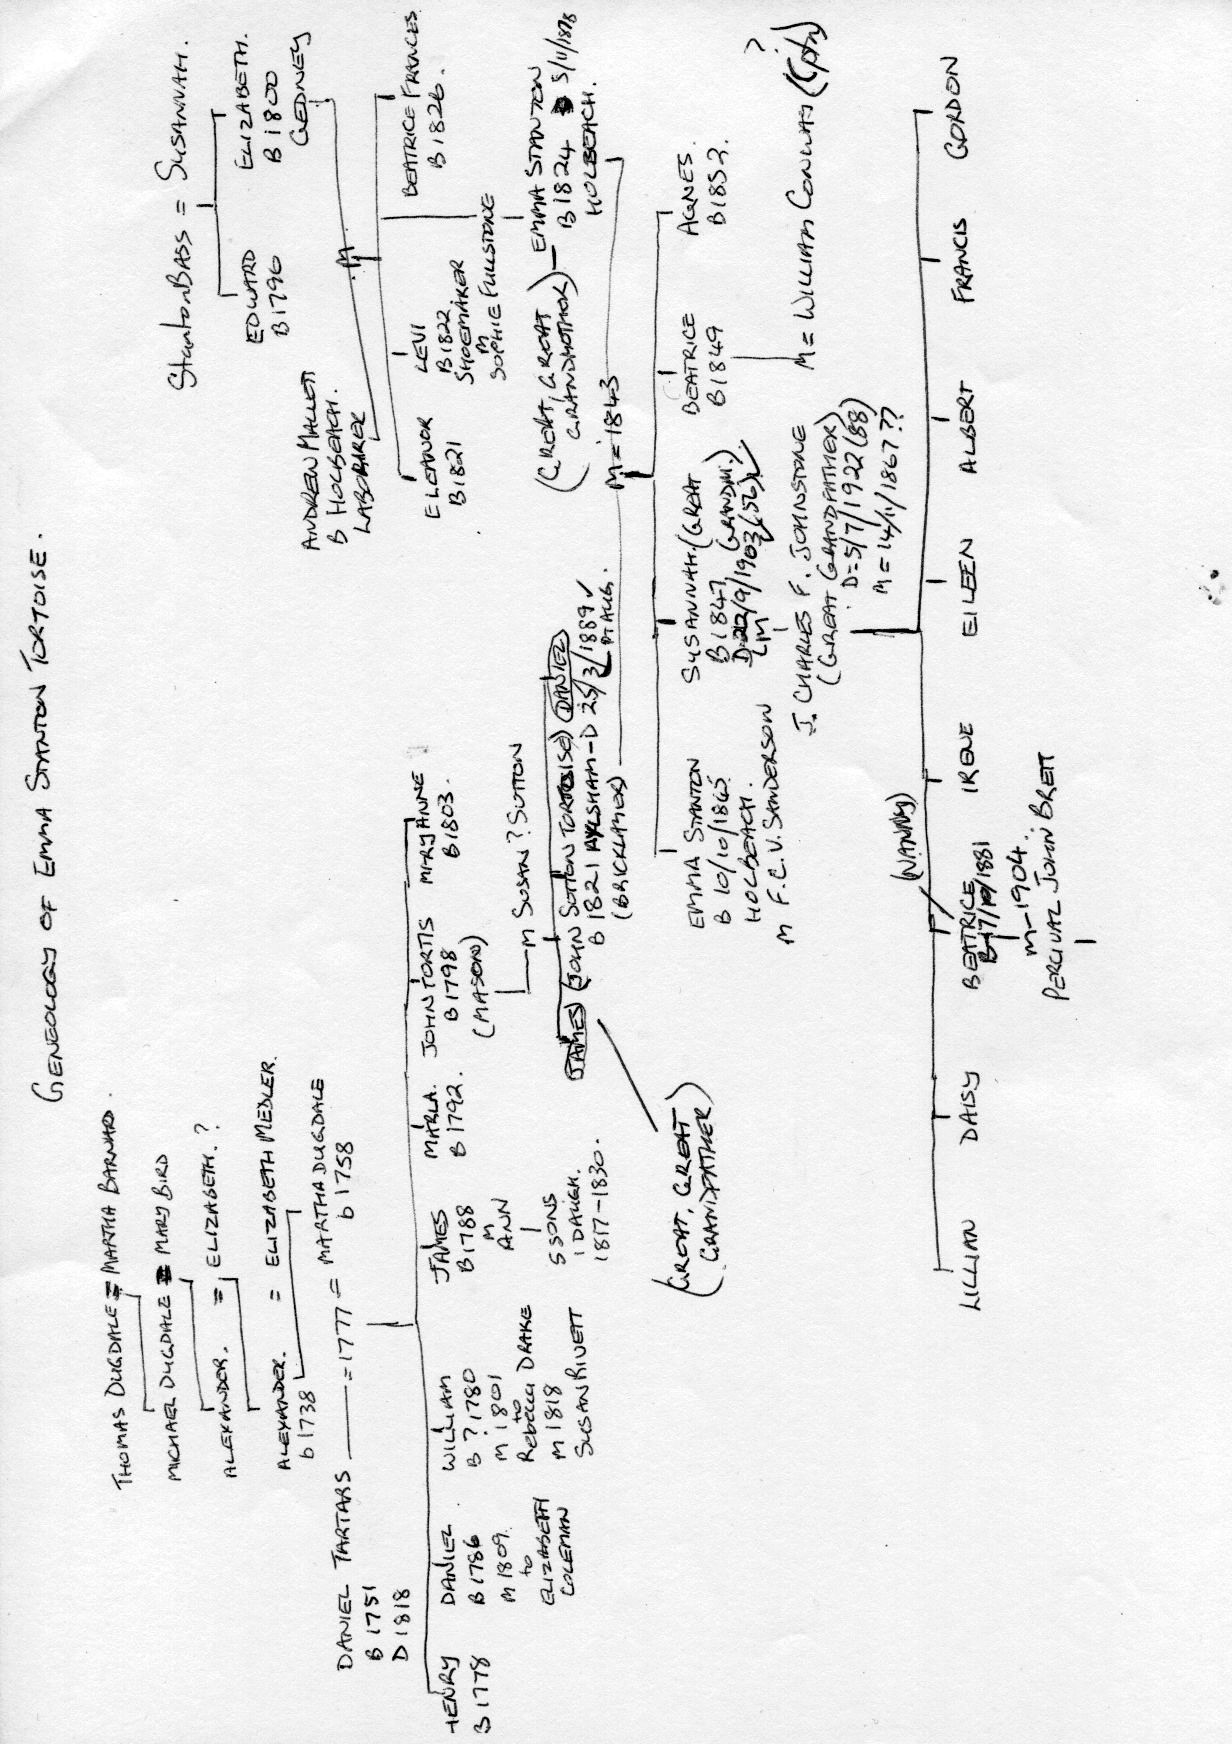 GENEOLOGY OF EMMA STANTON TORTOISE.
THOMAS DUGDALE = MARTHA BARNARD.
MICHAEL DUGDALE = MARY BIRD
ALEXANDER. = ELIZABETH. ?
ALEXANDER. = ELIZABETH MEDLER.
b 1738
DANIEL TARTARS = 1777 = MARTHA DUGDALE
b 1758
B 1751
D 1818
HENRY
B 1778
DANIEL
B 1786
M 1809.
to
ELIZABETH
COLEMAN
WILLIAM
B ? 1780
M 1801
to
Rebecca DRAKE
M 1818
SUSAN RIVETT
JAMES
B 1788
M
ANN
5 SONS
1 DAUGH.
1817-1830.
MARLA.
B 1792.
JOHN TORTIS
B 1798
(MASON)
MARY ANNE
B 1803.
M SUSAN ? SUTTON
JAMES (JOHN SUTTON TORTOISE) DANIEL
B 1821 AYLSHAM - D 25/3/1889 ✓
PT AUG.
(BRICKLAYER)
(GREAT, GREAT
GRANDFATHER)
Stanton BASS = SUSANNAH.
EDWARD
B 1796
ELIZABETH.
B 1800
GEDNEY
ANDREW MALLETT
B HOLBEACH.
LABOBARER
M
ELEANOR
B 1821
LEVI
B 1822.
SHOEMAKER
M
SOPHIE FULLSTONE
BEATRICE FRANCES
B 1826.
(GREAT, GREAT
GRANDMOTHER)
EMMA STANTON
B 1824 D 5/11/1878
HOLBEACH.
M = 1843
EMMA STANTON
B 10/10/1845
HOLBEACH.
M F.C.V. SANDERSON
SUSANNAH. (GREAT
GRANDM.)
B 1847
D 22/9/1903 (56) ✓
M
J. CHARLES F. JOHNSTONE
(GREAT GRANDFATHER)
D = 5/7/1922 (88)
M = 14/11/1867 ??
BEATRICE
B 1849
M = WILLIAM CONWAY (Cptn)
?
AGNES.
B 1852.
(NANNY)
LILLIAN
DAISY
BEATRICE
B 17/10/1881
M - 1904.
PERCIVAL JOHN BRETT
IRENE
EILEEN
ALBERT
FRANCIS
GORDON